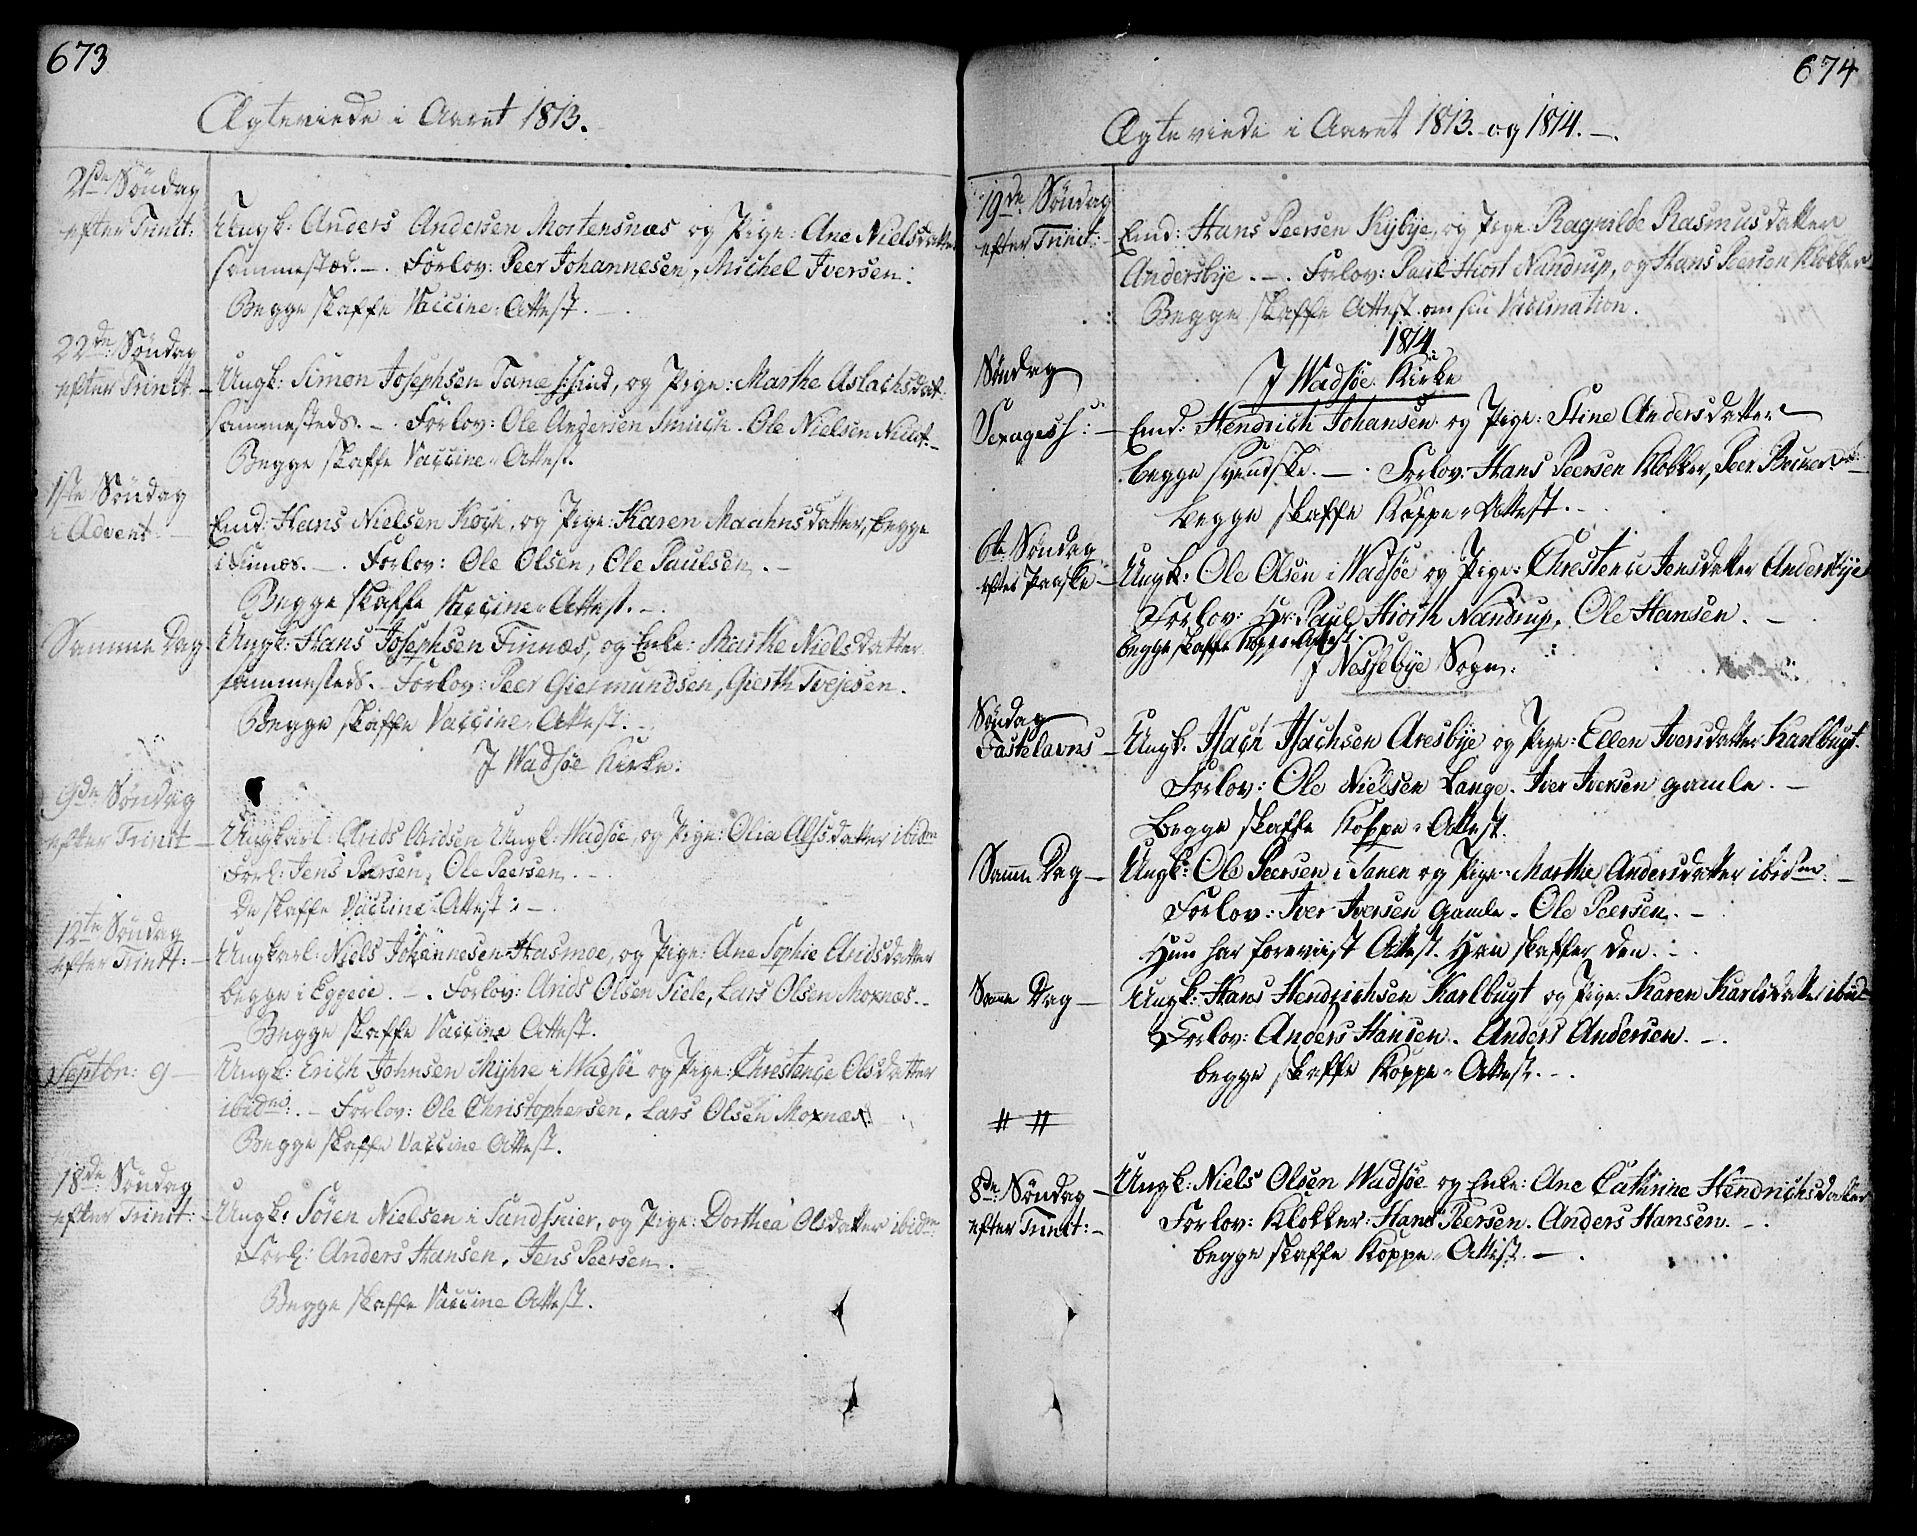 673
Ægteviede i Aaret 1813.
21de Søndag
efter Trinit:
Ungk: Anders Andersen Mortensnæs og Pige: Ane Nielsdatter
sammestæd. - . Forlov: Peer Johannesen, Michel Iversen:
Begge skaffe Vaccine-Attest. -
22de Søndag
efter Trinit. -
Ungk: Simon Josephsen Tane, og Pige: Marthe Aslachsdat:
sammesteds. - . Forlov: Ole Andersen Smuch. Ole Nielsen
Begge skaffe Vaccine-Attest.
1ste Søndag
i Advent. -
Emd: Hans Nielsen Koch, og Pige: Karen Maahnsdatter, begge
i Finnæs. - . Forlov: Ole Olsen, Ole Paulsen. -
Begge skaffe Vaccine-Attest. - .
Samme Dag
Ungk: Hans Josephsen Finnæs, og Enke: Marthe Nielsdatter
sammesteds. - Forlov: Peer Giermundsen, Gierth Tvejesen.
Begge skaffe Vaccine-Attest. -
I Wadsøe Kirke:
9de Søndag
efter Trinit -
Ungkarl: Arids Aridsen Ungk: Wadsøe, og Pige: Olia Alfsdatter ibidm
Forl: Jens Peersen, Ole Peersen. -
De skaffe Vaccine-Attest: -
12te Søndag
efter Trinit: -
Ungkarl: Niels Johannesen Hasmoe, og Pige: Ane Sophie Aridsdatter
begge i Eggeoe. - . Forlov: Arids Olsen Tiele, Lars Olsen Moxnæs. -
Begge skaffe Vaccine Attest.
Septbr: 9 -
Ungk: Erich Johnsen Myhre i Wadsöe og Pige: Chrestence Olsdatter
ibidm: . - Forlov: Ole Christophersen, Lars Olsen Moxnæs:
Begge skaffe Vaccine Attest.
18de Søndag
efter Trinit: -
Ungk: Sören Nielsen i Sandskier, og Pige: Dorthea Olsdatter ibidm:
Forl: Anders Hansen, Jens Peersen.
Begge skaffe Vaccine Attest.
674
Ægteviede i Aaret 1813. og 1814. - .
19de Søndag
efter Trinit:
Emd: Hans Peersen Kybye, og Pige: Ragnilde Rasmusdatter
Andersbye. - . Forlov: Paul Hiort Nandrup, og Hans Peersen Klokker
Begge skaffe Attest om sin Vaccination.
1814.
I Wadsøe Kirke
Søndag
Sexages: -
Emd: Hendrich Johansen og Pige: Stine Andersdatter
begge svendske. - . Forlov: Hans Peersen Klokker, Peer
begge skaffe Koppe-Attest. -
6te Søndag
efter Paaske -
Ungk: Ole Olsen i Wadsøe og Pige: Chrestence Jensdatter Andersbye
Forlov: Hr: Paul Hiorth Nandrup, Ole Hansen. -
begge skaffe Koppe-Attest.
I Nessebye Sogn:
Søndag
Fastelavns -
Ungk. Isach Isachsen Aresbye og Pige: Ellen Iversdatter Karlbugt.
Forlov: Ole Nielsen Lange. Iver Iversen gamle. -
Begge skaffe Koppe-Attest.
Samme Dag -
Ungk: Ole Peersen i Tanen og Pige: Marthe Andersdatter ibidm: -
Forlov: Iver Iversen Gamle - Ole Peersen. -
Hun har foreviist Attest. Han skaffer den. -
Samme Dag -
Ungk: Hans Hendrichsen Karlbugt og Pige: Karen Karlsdatter ibid
Forlov: Anders Hansen. Anders Andersen. - .
begge skaffe Koppe-Attest. - .
8de Søndag -
efter Trinit: -
Ungk: Niels Olsen Wadsøe og Enke: Ane Cathrine Hendrichsdatter
Forlov: Klokker: Hans Peersen. Anders Hansen. - .
begge skaffe Koppe-Attest. - .